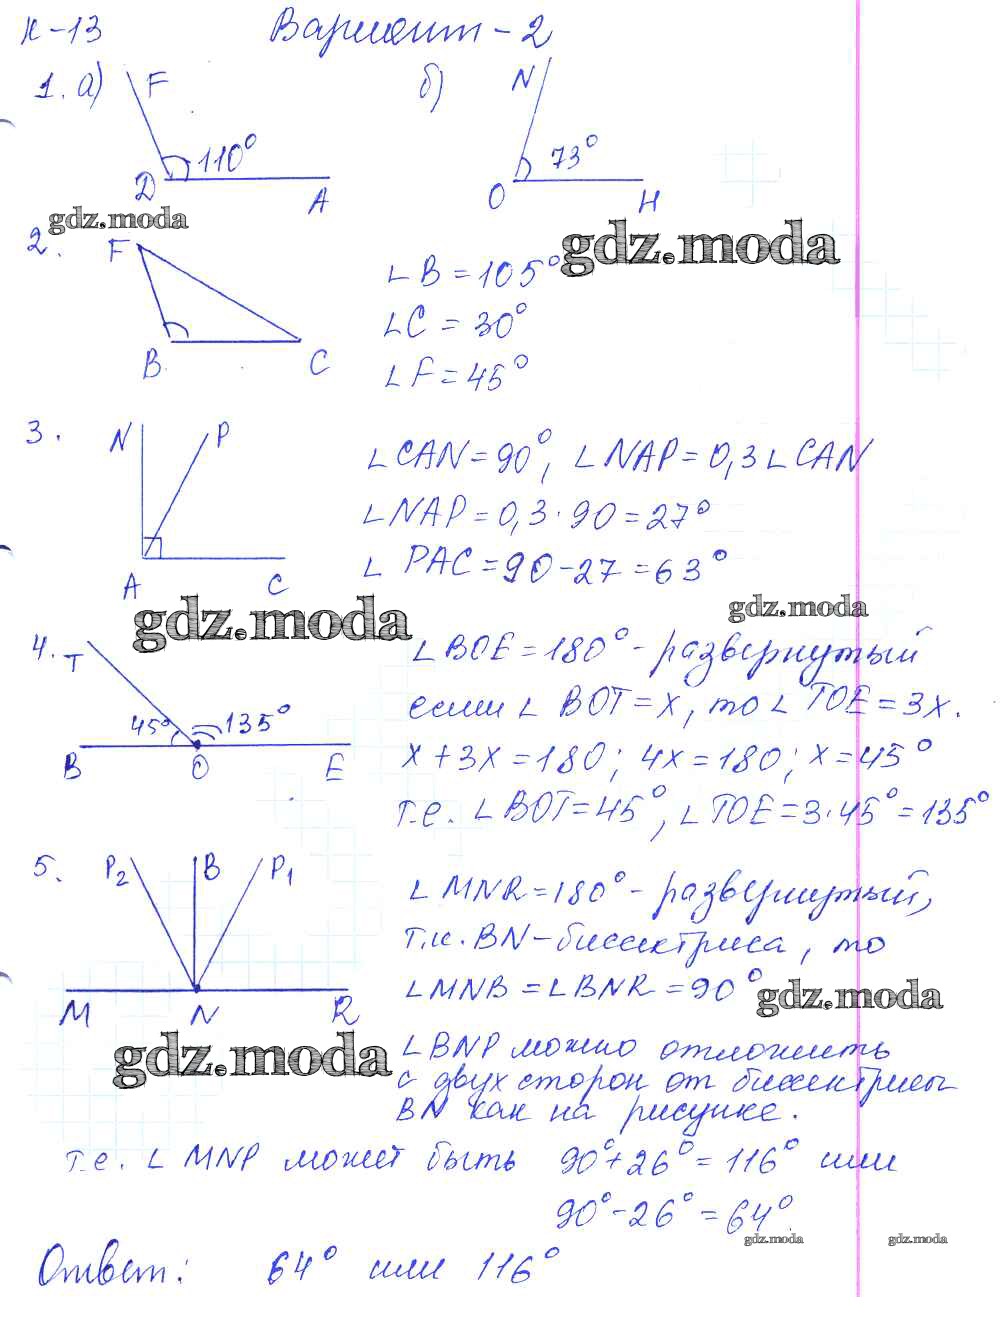 К-13 Вариант-2
1. а) F 110° D A
б) N 73° O H
gdz.moda
gdz.moda
2. F B C
∠B = 105°
∠C = 30°
∠F = 45°
3. N P A C
∠CAN = 90°, ∠NAP = 0,3∠CAN
∠NAP = 0,3·90 = 27°
∠PAC = 90-27 = 63°
gdz.moda
gdz.moda
4. T 45° 135° B O E
∠BOE = 180° - развернутый
если ∠BOT = x, то ∠TOE = 3x.
x + 3x = 180; 4x = 180; x = 45°
т.е. ∠BOT = 45°, ∠TOE = 3·45° = 135°
5. P₂ B P₁ M N R
∠MNR = 180° - развернутый,
т.к. BN - биссектриса, то
∠MNB = ∠BNR = 90°
gdz.moda
gdz.moda
∠BNP можно отложить
с двух сторон от биссектрисы
BN как на рисунке.
т.е. ∠MNP может быть 90°+26° = 116° или
90°-26° = 64°.
gdz.moda gdz.moda
Ответ: 64° или 116°